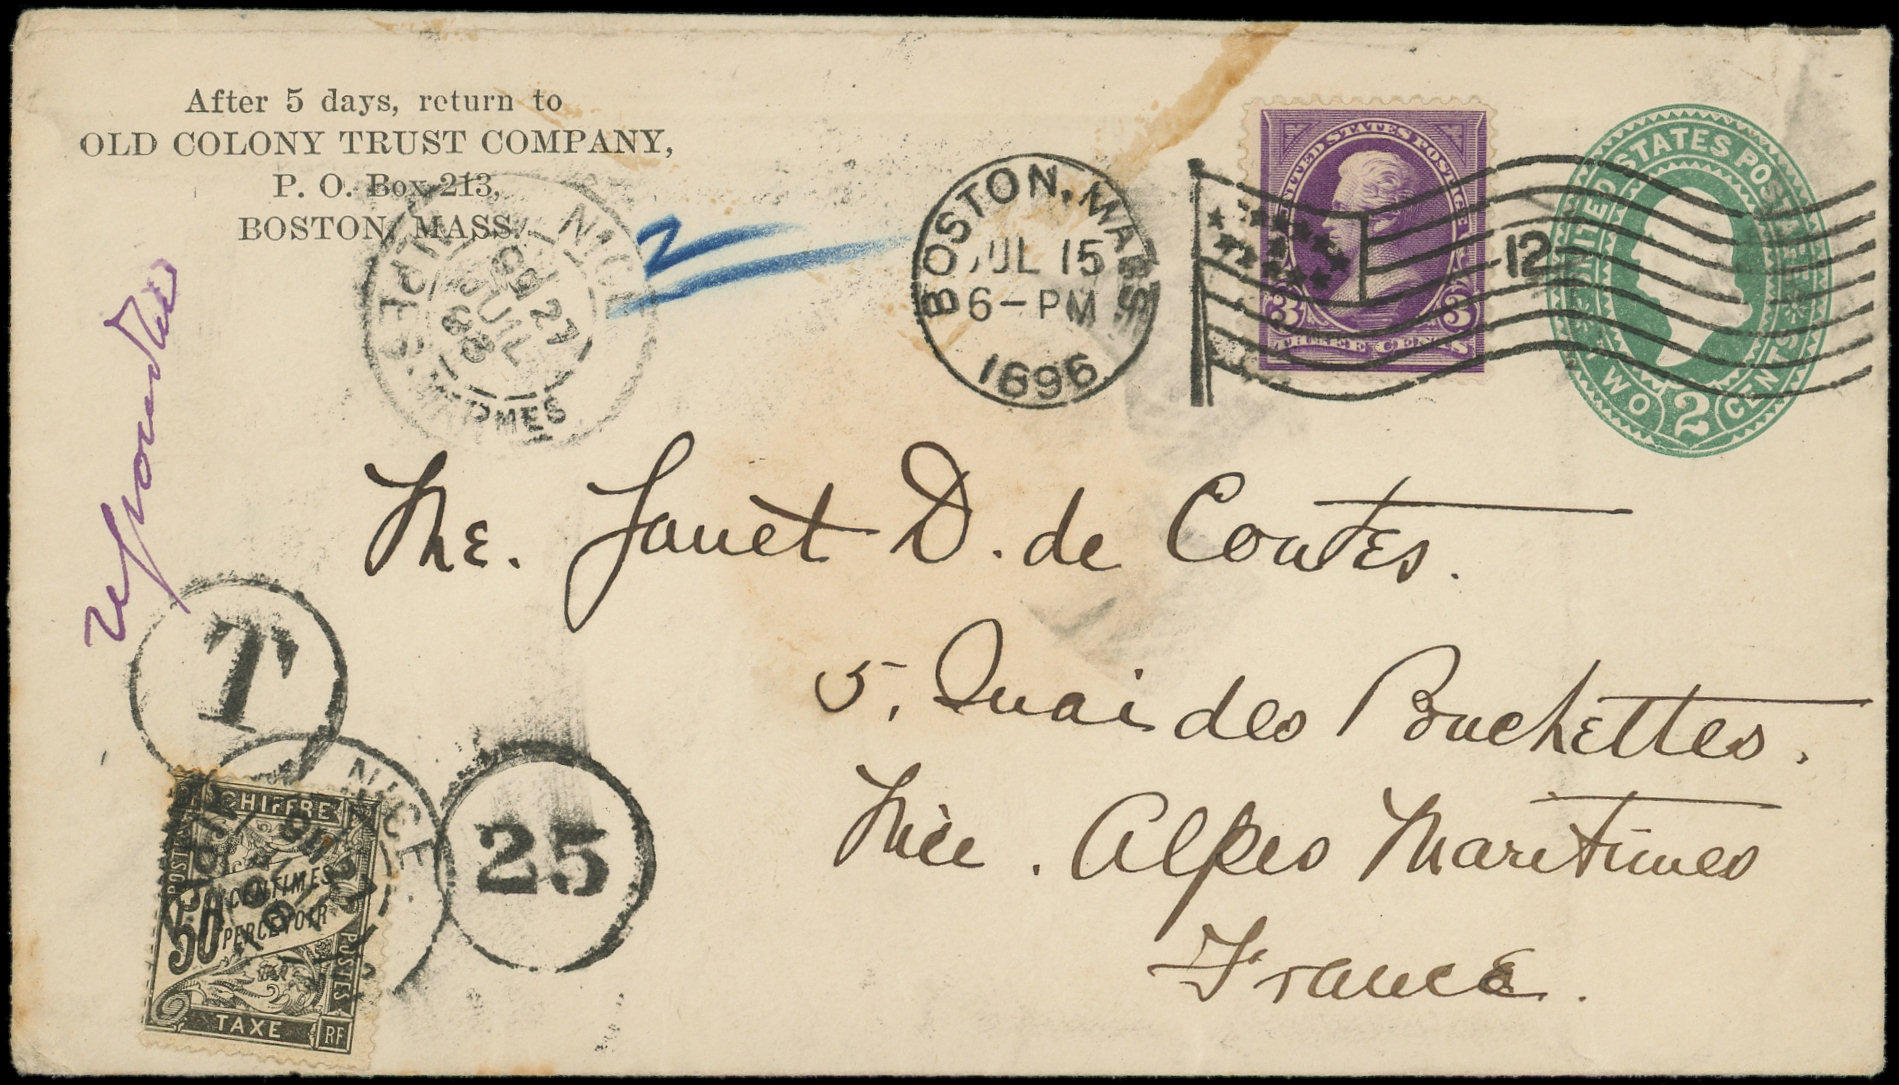 After 5 days, return to
OLD COLONY TRUST COMPANY,
P. O. Box 213,
BOSTON, MASS.
NICE
27
JUIL
96
ALPES-MARMES
2
BOSTON, MASS
JUL 15
6-PM
1896
12
UNITED STATES POSTAGE
3 3
THREE CENTS
UNITED STATES POSTAGE
TWO 2 CENTS
Me. Janet D. de Coutes.
5, Quai des Ponchettes.
Nice. Alpes Maritimes
France.
répondu
T
25
NICE
CHIFFRE
POSTES
50 CENTIMES
PERCEVOIR
POSTES
TAXE RF